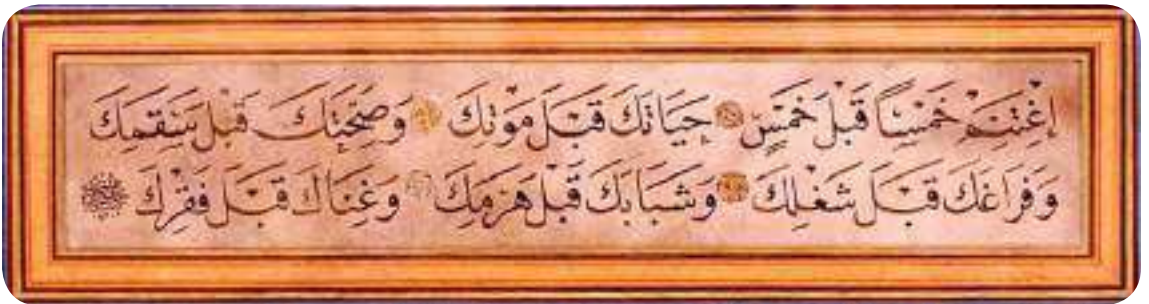 اِغْتَنِمْ خَمْسًا قَبْلَ خَمْسٍ حَيَاتَكَ قَبْلَ مَوْتِكَ وَصِحَّتَكَ قَبْلَ سَقَمِكَ
وَفَرَاغَكَ قَبْلَ شُغْلِكَ وَشَبَابَكَ قَبْلَ هَرَمِكَ وَغِنَاكَ قَبْلَ فَقْرِكَ